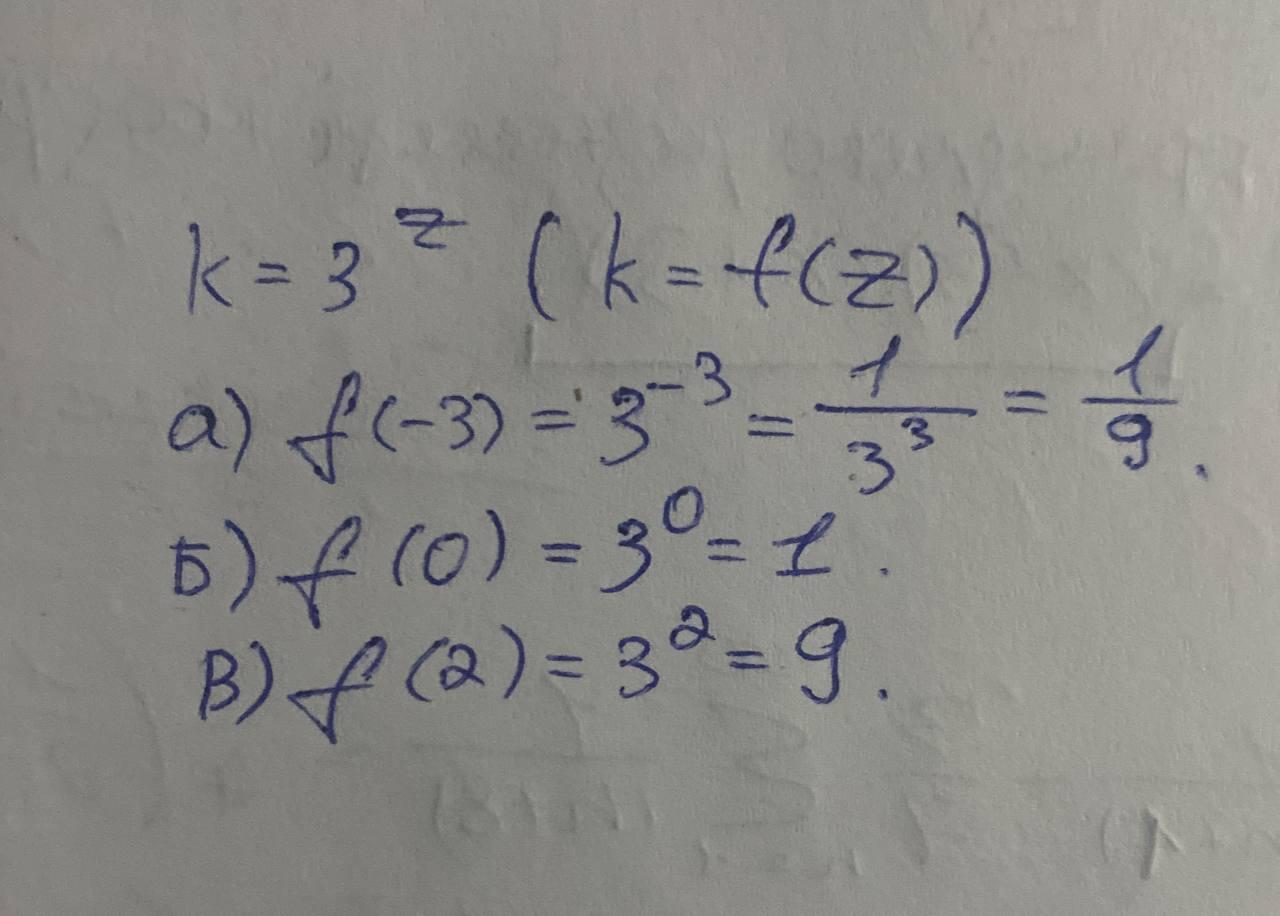 k = 3^z ( k = f(z) )
а) f(-3) = 3^-3 = 1/3^3 = 1/9.
Б) f(0) = 3^0 = 1.
В) f(2) = 3^2 = 9.